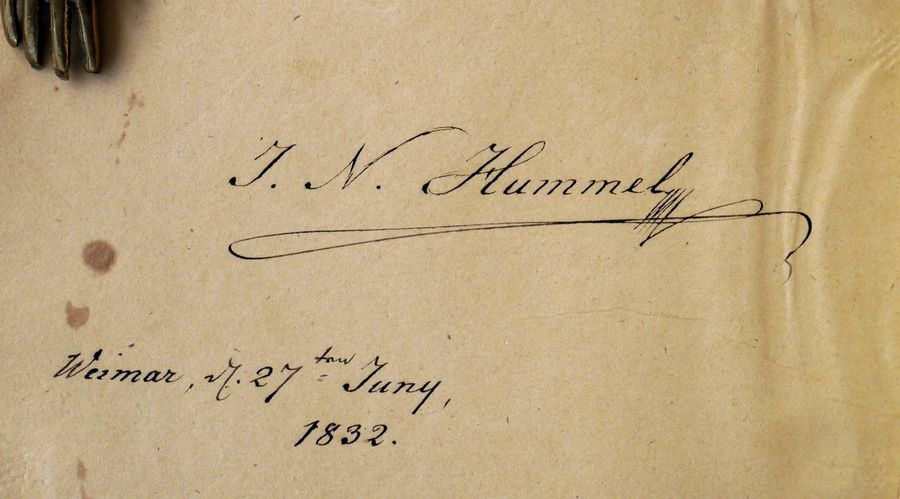 J. N. Hummel
Weimar, d. 27ten Juny,
1832.